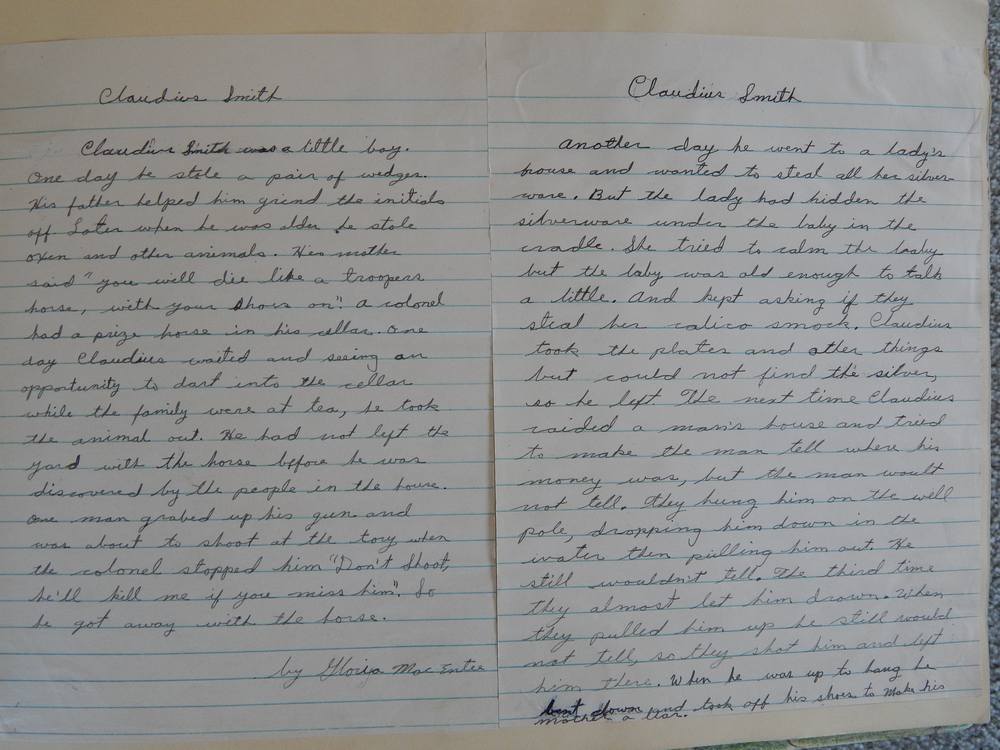 Claudius Smith
Claudius Smith was a little boy.
One day he stole a pair of wedges.
His father helped him grind the initials
off Later when he was older he stole
oxen and other animals. His mother
said "you will die like a troopers
horse, with your shoes on". a colonel
had a prize horse in his cellar. One
day Claudius waited and seeing an
opportunity to dart into the cellar
while the family were at tea, he took
the animal out. He had not left the
yard with the horse before he was
discovered by the people in the house.
One man grabed up his gun and
was about to shoot at the tory when
the colonel stopped him "Don't Shoot,
he'll kill me if you miss him". So
he got away with the horse.
by Gloria Mac Entee
Claudius Smith
Another day he went to a lady's
house and wanted to steal all her silver-
ware. But the lady had hidden the
silverware under the baby in the
cradle. She tried to calm the baby
but the baby was old enough to talk
a little. And kept asking if they
steal her calico smock. Claudius
took the plates and other things
but could not find the silver,
so he left. The next time Claudius
raided a man's house and tried
to make the man tell where his
money was, but the man woult
not tell. They hung him on the well
pole, dropping him down in the
water then pulling him out. He
still wouldn't tell. The third time
they almost let him drown. When
they pulled him up he still would
not tell, so they shot him and left
him there. When he was up to hang he
bent down and took off his shoes to make his
mother a liar.